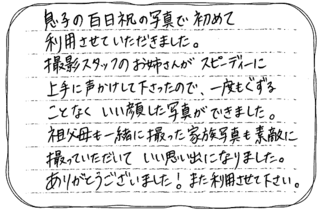 息子の百日祝の写真で初めて
利用させていただきました。
撮影スタッフのお姉さんがスピーディーに
上手に声かけして下さったので、一度もぐずる
ことなくいい顔した写真ができました。
祖父母も一緒に撮った家族写真も素敵に
撮っていただいていい思い出になりました。
ありがとうございました!また利用させて下さい。